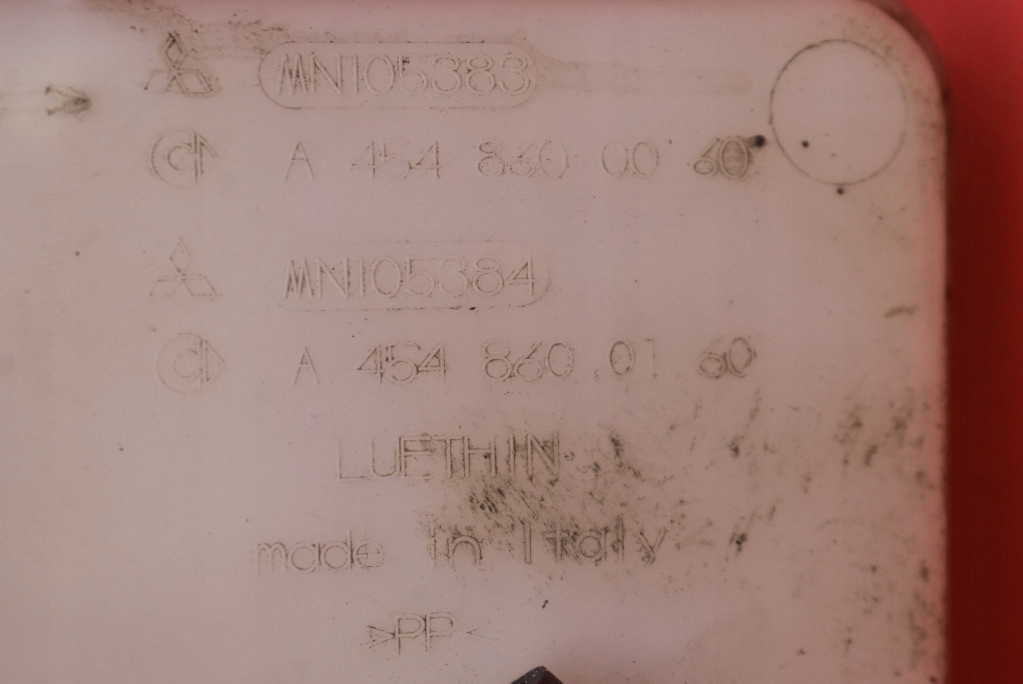 MN105383
A 454 860 00 60
MN105384
A 454 860 01 60
made in Italy
>PP<